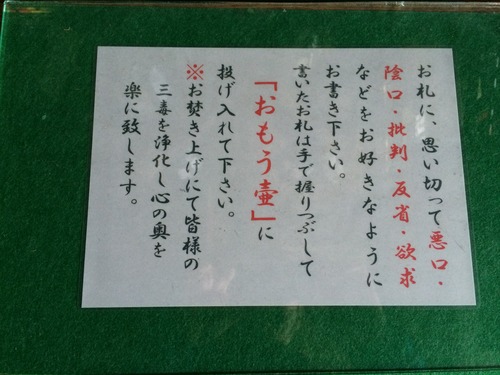 お札に、思い切って悪口・
陰口・批判・反省・欲求
などをお好きなように
お書き下さい。
書いたお札は手で握りつぶして
「おもう壷」に
投げ入れて下さい。
※お焚き上げにて皆様の
三毒を浄化し心の奥を
楽に致します。